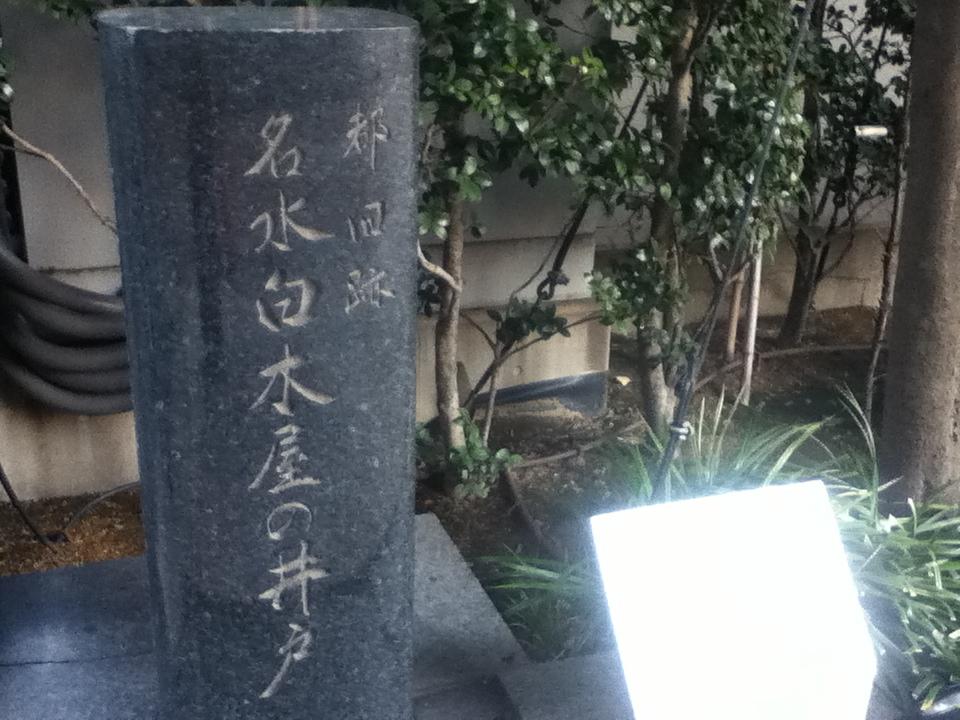 都旧跡
名水白木屋の井戸